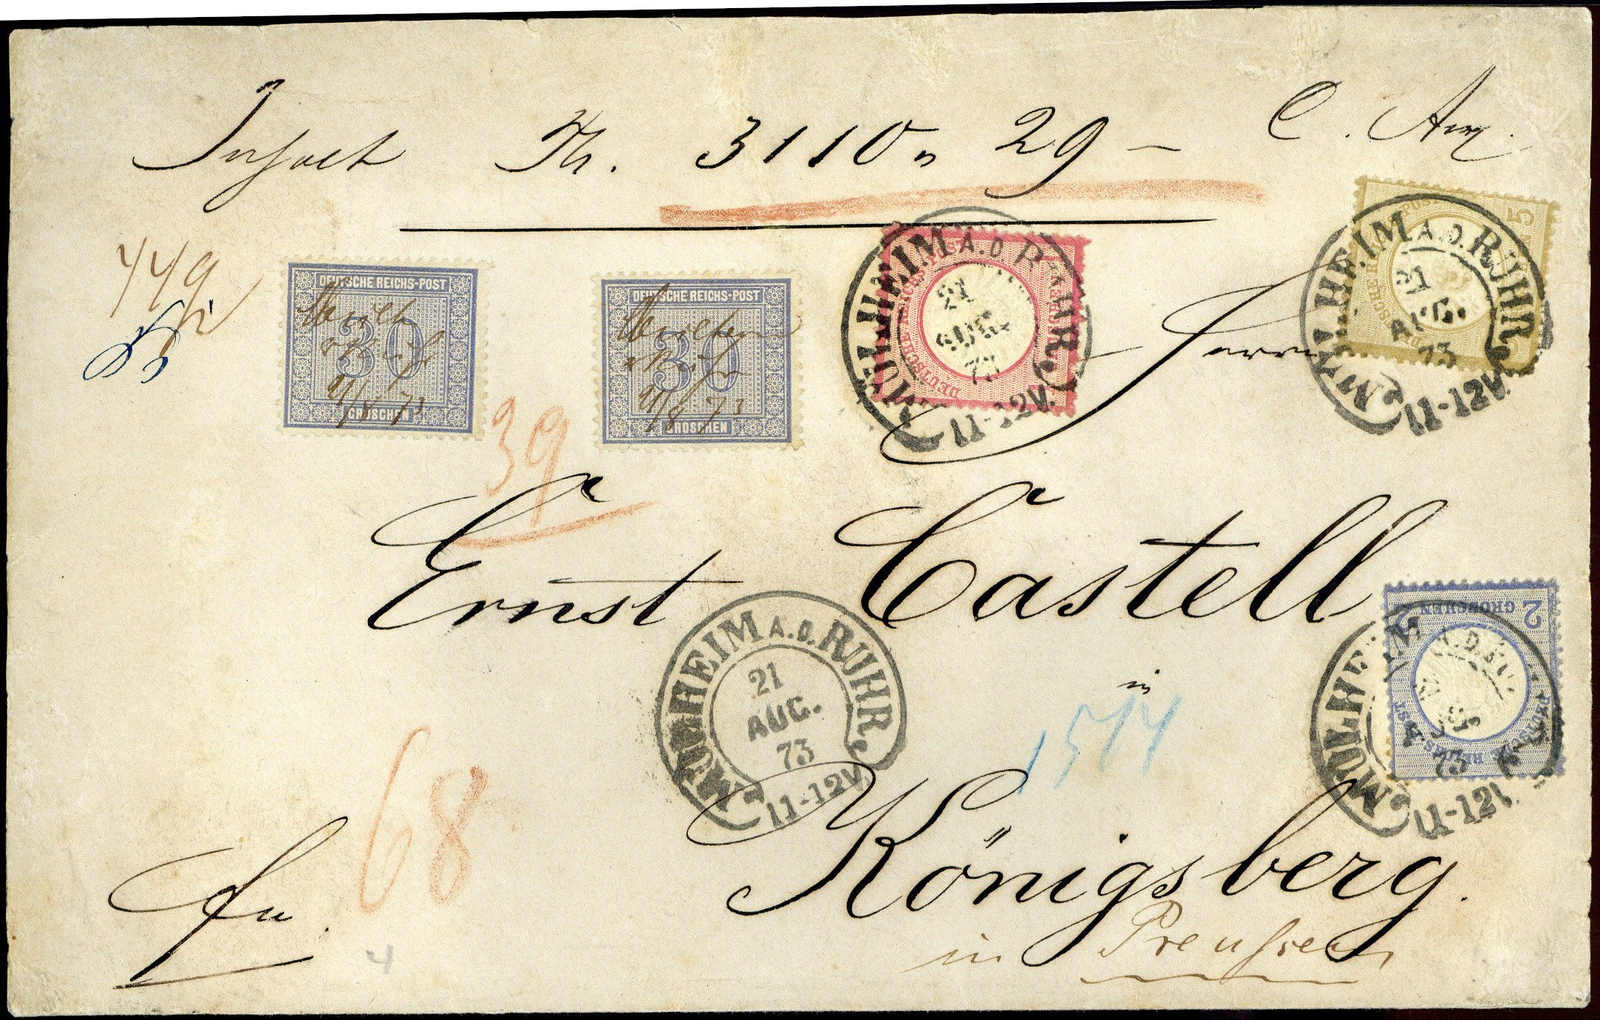 Inhalt Th. 3110 „ 29 – C. Anw.
449
DEUTSCHE REICHS-POST
30
GROSCHEN
21/8 73
DEUTSCHE REICHS-POST
30
GROSCHEN
21/8 73
MÜLHEIM A.D. RUHR
21
AUG.
73
11-12V
5
MÜLHEIM A.D. RUHR
21
AUG.
73
11-12V
Herrn
39
Ernst Castell
2 GROSCHEN
MÜLHEIM A.D. RUHR
21
AUG.
73
11-12V
MÜLHEIM A.D. RUHR
21
AUG.
73
11-12V
in
68
Königsberg.
fr.
in Preussen
4